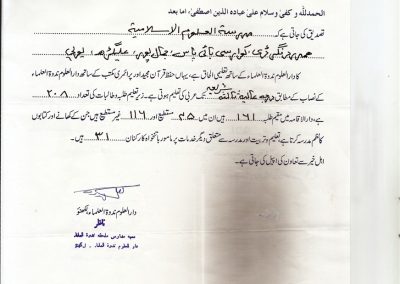 الحمدللہ و کفیٰ وسلام علیٰ عبادہ الذین اصطفیٰ، اما بعد
تصدیق کی جاتی ہے کہ مدرسۃ العلوم الاسلامیۃ
ہمدرد نگر ڈی، کوارسی بائی پاس، جمال پور، علیگڑھ، یوپی
کا دارالعلوم ندوۃ العلماء کے ساتھ تعلیمی الحاق ہے، یہاں حفظ قرآن مجید اور پرائمری مکتب کے ساتھ دارالعلوم ندوۃ العلماء
کے نصاب کے مطابق درجہ عالیہ ثالثہ شریعہ تک عربی کی تعلیم ہوتی ہے۔ زیر تعلیم طلبہ و طالبات کی تعداد ۲۰۸
ہے، دارالاقامہ میں مقیم طلبہ ۱۶۱ ہیں ان میں ۴۵ مستطیع اور ۱۱۶ غیر مستطیع ہیں جن کے کھانے اور کتابوں
کا نظم مدرسہ کرتا ہے تعلیم و تربیت اور مدرسہ سے متعلق دیگر خدمات پر مامور باتنخواہ کارکنان ۳۱ ہیں۔
اہل خیر سے تعاون کی اپیل کی جاتی ہے۔
دارالعلوم ندوۃ العلماء، لکھنؤ
ناظر
شعبہ مدارس ملحقہ ندوۃ العلماء
دار العلوم ندوۃ العلماء۔ لکھنؤ